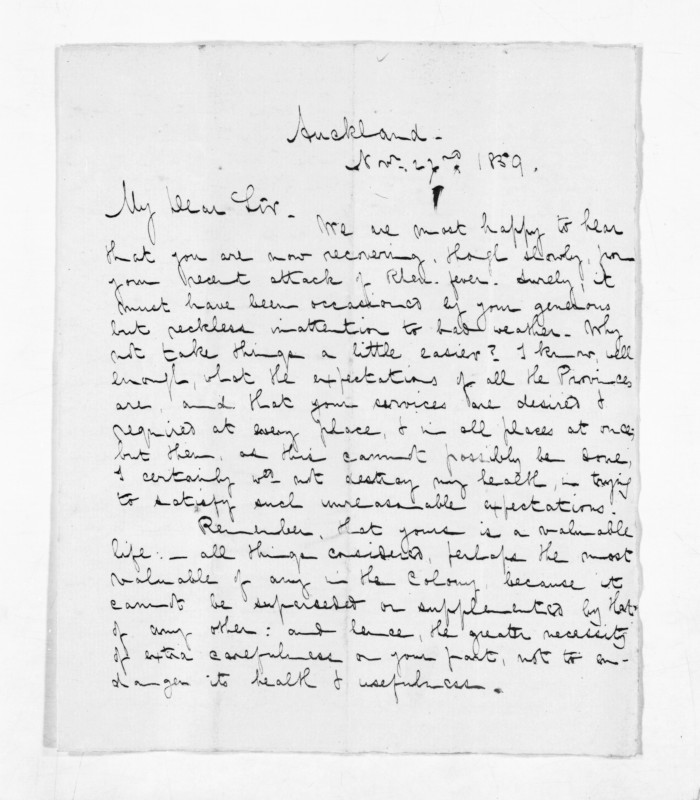 Auckland -
Novr. 22nd. 1859.
My Dear Sir -
We are most happy to hear
that you are now recovering, though slowly, from
your recent attack of Rheu. fever. Surely, it
must have been occasioned by your generous
but reckless inattention to bad weather. Why
not take things a little easier? I know, well
enough, what the expectations of all the Provinces
are, and that your services are desired &
required at every place, & in all places at once;
but then, as this cannot possibly be done,
I certainly wd. not destroy my health, in trying
to satisfy such unreasonable expectations.
Remember, that yours is a valuable
life: - all things considered, perhaps the most
valuable of any in the Colony, because it
cannot be superseded or supplemented by that
of any other: and hence, the greater necessity
of extra carefulness on your part, not to en-
danger its health & usefulness.